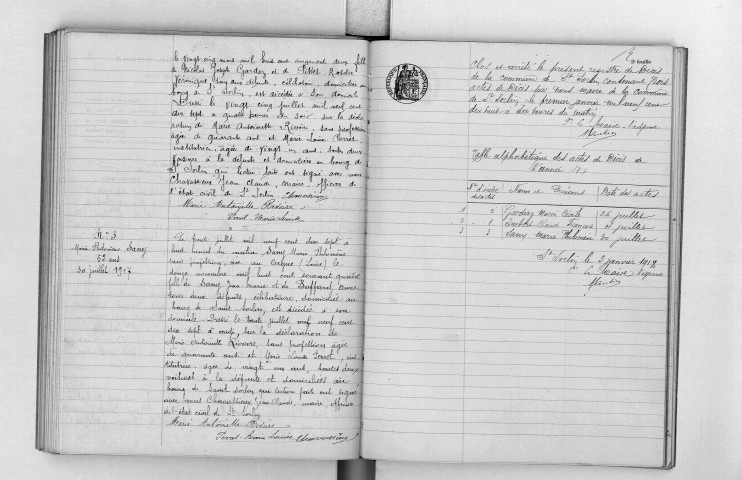 le vingt cinq mai mil huit cent cinquante deux fille
de Nicolas Joseph Gardaz et de Pittet Rosalie
Véronique, tous deux défunts, célibataire, domiciliée au
bourg de St Sorlin, est décédée à son domicile
Dressé le vingt cinq juillet mil neuf cent
dix sept à quatre heures du soir, sur la décla
ration de Marie Antoinette Rivoire, sans profession
âgée de quarante ans et Marie Louise Perret,
institutrice, âgée de vingt un ans, toutes deux
voisines à la défunte et domiciliées au bourg de
St Sorlin qui lecture faite ont signé avec nous
Chavassieux Jean Claude, maire, officier de
l'état civil de St Sorlin
Marie Antoinette Rivoire
Perret Marie Louise
No 3
Marie Philomène Samy
52 ans
30 juillet 1917
Le trente juillet mil neuf cent dix sept à
huit heures du matin, Samy Marie Philomène
sans profession, née au Cergne (Loire) le
douze novembre mil huit cent soixante quatre
fille de Samy Jean Marie et de Buffard
tous deux défunts, célibataire, domiciliée au
bourg de Saint Sorlin, est décédée à son
domicile. Dressé le trente juillet mil neuf cent
dix sept à midi, sur la déclaration de
Marie Antoinette Rivoire, sans profession âgée
de quarante ans et Marie Louise Perret, ins
titutrice, âgée de vingt un ans, toutes deux
voisines à la défunte et domiciliées au
bourg de Saint Sorlin qui lecture faite ont signé
avec nous Chavassieux Jean Claude, maire, officier
de l'état civil de St Sorlin
Marie Antoinette Rivoire
Perret Marie Louise Chavassieux
Clos et arrêté le présent registre de Décès
de la commune de St Sorlin contenant trois
actes de Décès par nous maire de la commune
de St Sorlin, le premier janvier mil neuf cent
dix huit à dix heures du matin
Table alphabétique des actes de Décès de
l'année 1917
Noms et Prénoms Date des actes
2 Gardaz Marie Cécile 25 juillet
1 Claude François juillet
3 Samy Marie Philomène 30 juillet
St Sorlin le 2 janvier 1918
Le Maire